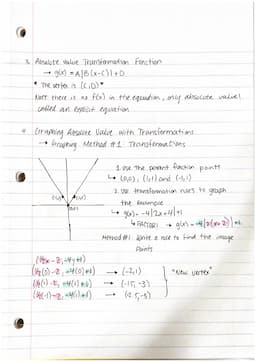 3. Absolute Value Transformation Function
→ g(x) = A|B(x-C)| + D
* The vertex is (C,D) *
Note: there is no f(x) in the equation, only absolute value!
called an explicit equation
4. Graphing Absolute Value with Transformations
→ Graphing Method #1 Transformations
1. use the parent function points
↳ (0,0), (1,1) and (-1,1)
2. use transformation rules to graph
the example
↳ g(x) = -4|2x+4|+1
↳ FACTOR! → g(x) = -4|2(x+2)|+1
Method #1 Write a rule to find the image
points
(-1,1) (1,1)
(0,0)
(½x-2, -4y+1)
(½(0)-2, -4(0)+1) → (-2,1) "New vertex"
(½(1)-2, -4(1)+1) → (-1.5,-3)
(½(-1)-2, -4(1)+1) → (-2.5,-3)